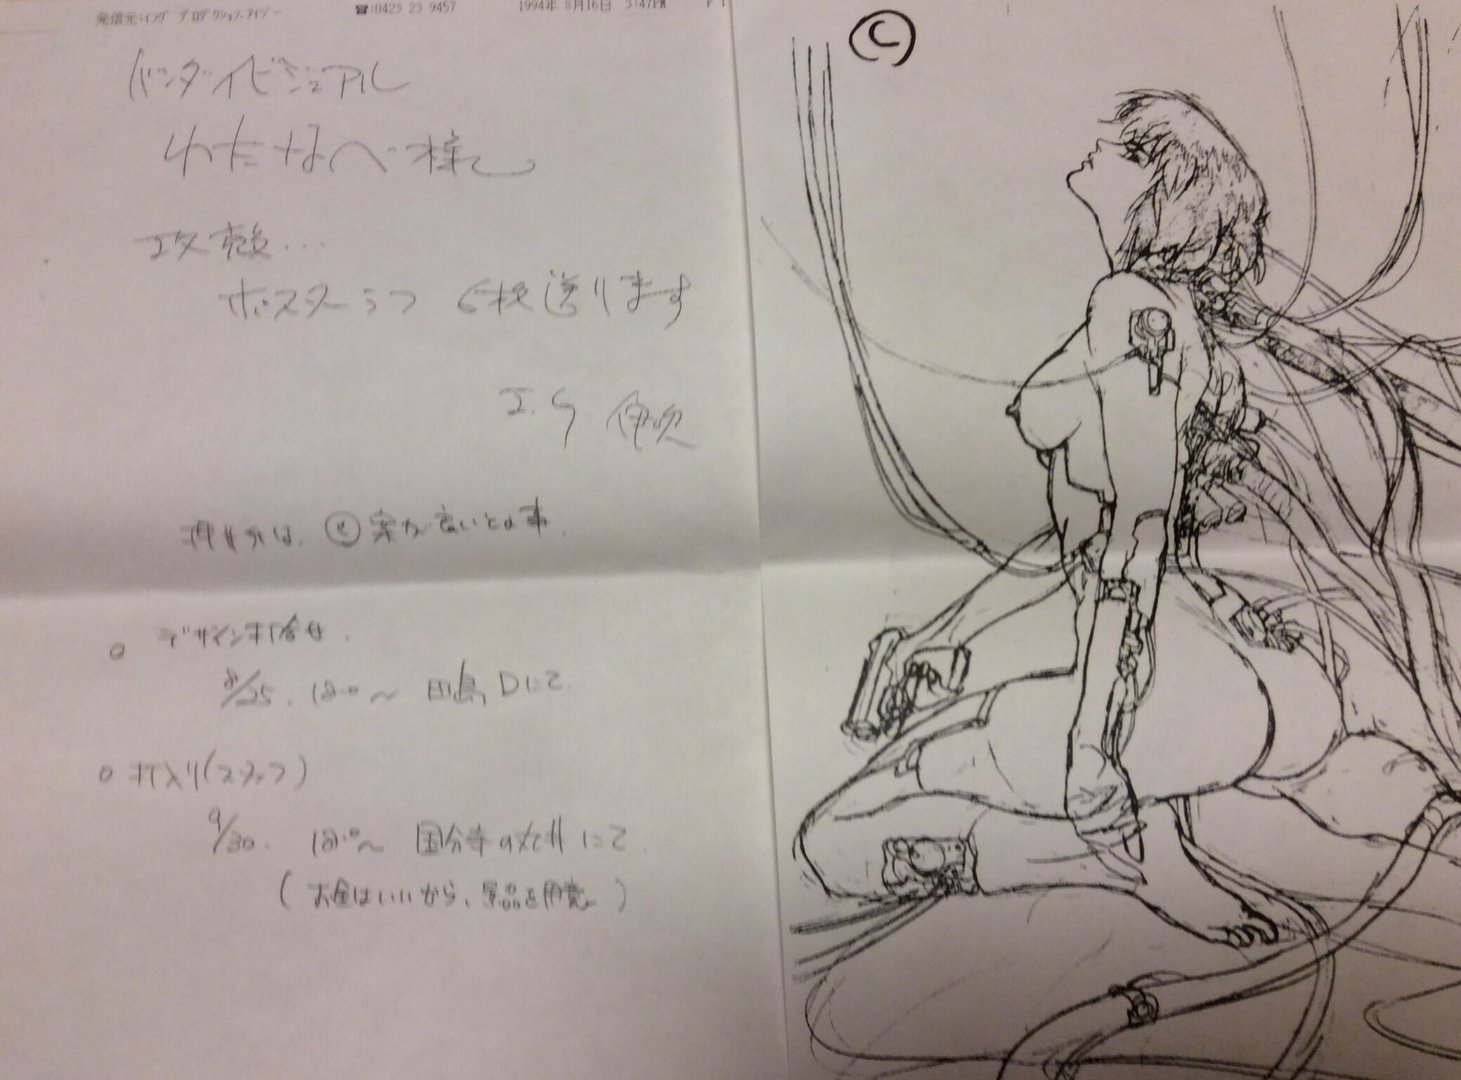 発信元:イング プロダクション.アイジー ☎:0423 23 9457 1994年 8月16日 3:47PM P 1
バンダイビジュアル
わたなべ様
攻殻...
ポスターラフ 6枚送ります
I.G 伊吹
押井氏は、Ⓒ案が良いとの事.
○ デザイン打合せ.
8/25. 18:00〜 田島Dにて.
○ 打入り(スタッフ)
9/30. 18:00〜 国分寺の丸井にて.
(お金はいいから、景品を用意。)
Ⓒ